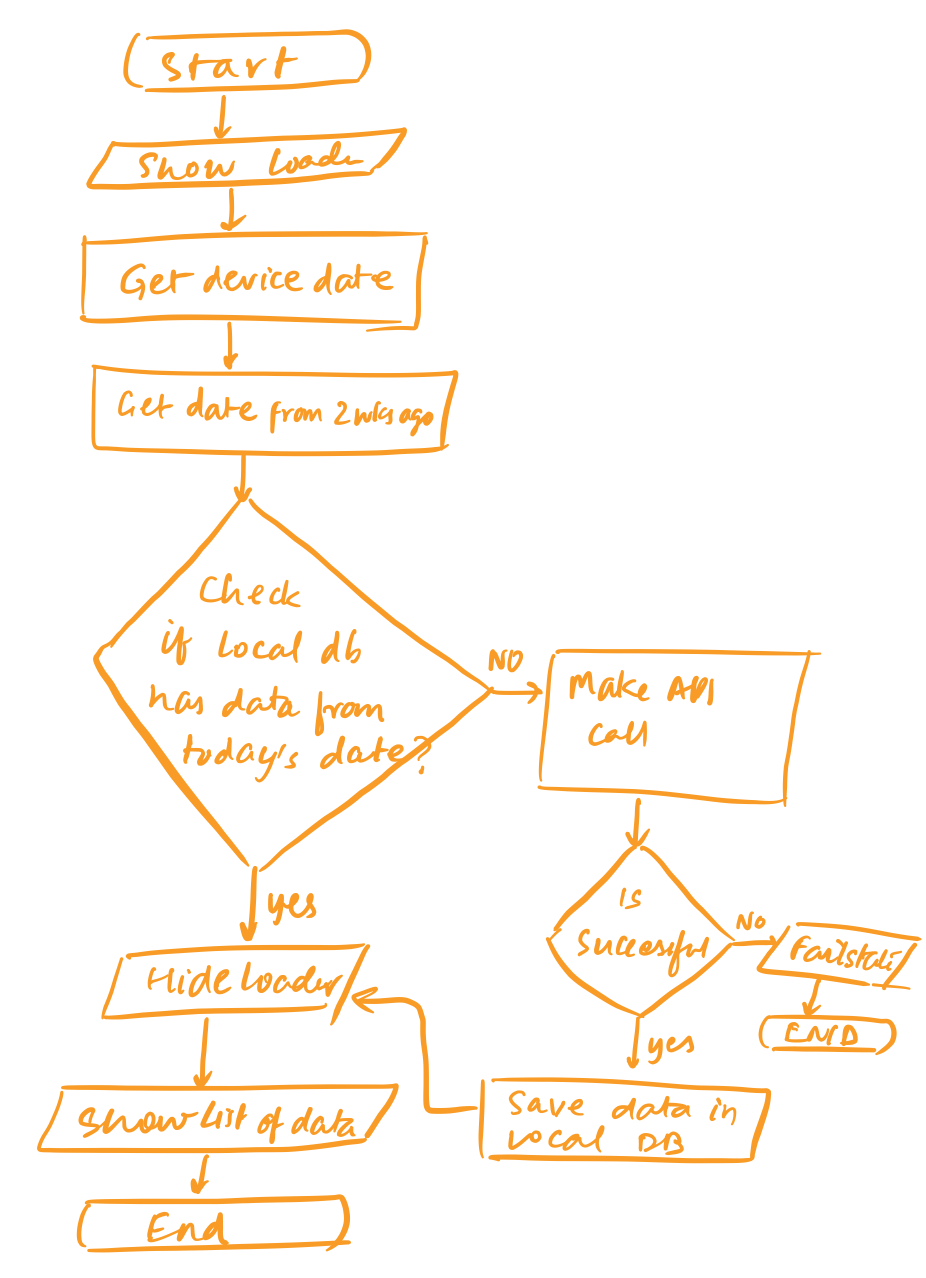 Start
Show loader
Get device date
Get date from 2wks ago
Check
if local db
has data from
today's date?
NO
Make API
call
yes
Is
Successful
No
Failstate
END
yes
Hide Loader
Save data in
local DB
Show list of data
End